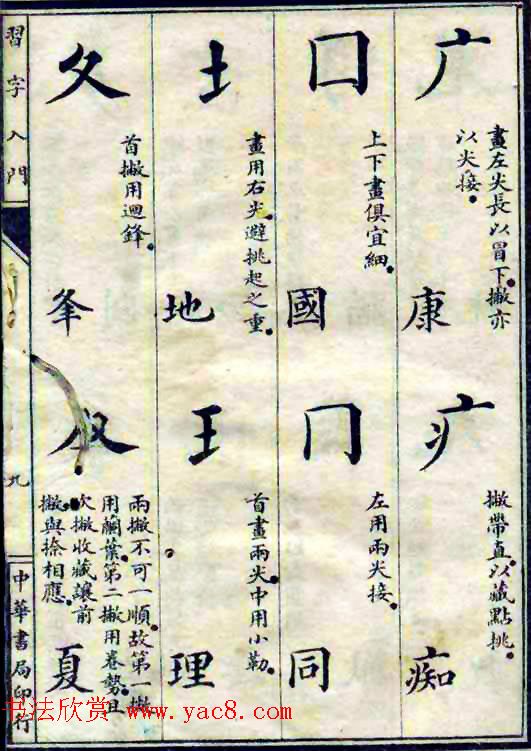 广
畫左尖長以冒下。撇亦
以尖接。
康
疒
撇帶直。以藏點挑。
痴
囗
上下畫俱宜細。
國
冂
左用兩尖接。
同
土
畫用右尖。避挑起之重。
地
王
首畫兩尖。中用小勒。
理
夂
首撇用迴鋒。
夆
兩撇不可一順。故第一撇
用蘭葉。第二撇用卷勢。且
次撇收藏讓前
撇與捺相應。
夏
習字入門
九
中華書局印行
书法欣赏 www.yac8.com